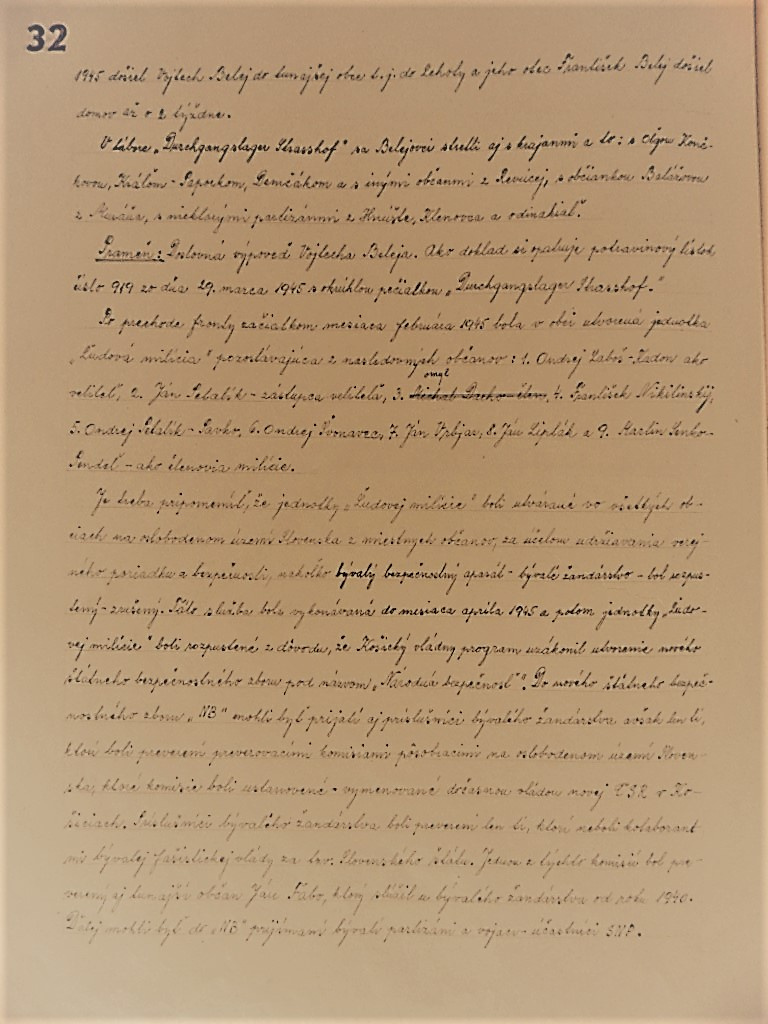 32
1945 došiel Vojtech Belej do tunajšej obce t. j. do Leholy a jeho otec František Belej došiel
domov až o 2 týždne.
V tábore „Durchgangslager Strasshof" sa Belejovci stretli aj s krajanmi a to: s Oľgou
kovou, Kráľom - Paporkom, Demčákom a s inými občanmi z Revúcej, s občiankou Balážovou
z Muráňa, s niektorými partizánmi z Hnúšte, Klenovca a odinakiaľ.
Prameň: Doslovná výpoveď Vojtecha Beleja. Ako doklad si opatruje potravinový lístok
číslo 919 zo dňa 29. marca 1945 s okrúhlou pečiatkou „Durchgangslager Strasshof."
Po prechode fronty začiatkom mesiaca februára 1945 bola v obci utvorená jednotka
„Ľudová milícia" pozostávajúca z nasledovných občanov: 1. Ondrej Laboš-Kadon ako
omyl
veliteľ, 2. Ján Petalík - zástupca veliteľa, 3. Michal Dzeko - člen, 4. František Nikilinskij,
5. Ondrej Petalík - Pavko, 6. Ondrej Zvonavec, 7. Ján Vrbjar, 8. Ján Liplák a 9. Martin Senko-
Pendeľ - ako členovia milície.
Je treba pripomenúť, že jednotky „Ľudovej milície" boli utvárané vo všetkých ob-
ciach na oslobodenom území Slovenska z miestnych občanov, za účelom udržiavania verej-
ného poriadku a bezpečnosti, nakoľko bývalý bezpečnostný aparát - bývalé žandárstvo - bol rozpus-
tený - zrušený. Táto služba bola vykonávaná do mesiaca apríla 1945 a potom jednotky „Ľudo-
vej milície" boli rozpustené z dôvodu, že Košický vládny program uzákonil utvorenie nového
štátneho bezpečnostného zboru pod názvom „Národná bezpečnosť". Do nového štátneho bezpeč-
nostného zboru „NB" mohli byť prijatí aj príslušníci bývalého žandárstva avšak len tí,
ktorí boli preverení preverovacími komisiami pôsobiacimi na oslobodenom území Sloven-
ska, ktoré komisie boli ustanovené - vymenované dočasnou vládou novej ČSR v Ko-
šiciach. Príslušníci bývalého žandárstva boli preverení len tí, ktorí neboli kolaborant
mi bývalej fašistickej vlády za tzv. Slovenského štátu. Jednou z týchto komisií bol pre-
verený aj tunajší občan Ján Fabo, ktorý slúžil u bývalého žandárstva od roku 1940.
Ďalej mohli byť do „NB" prijímaní bývalí partizáni a vojaci - účastníci SNP.